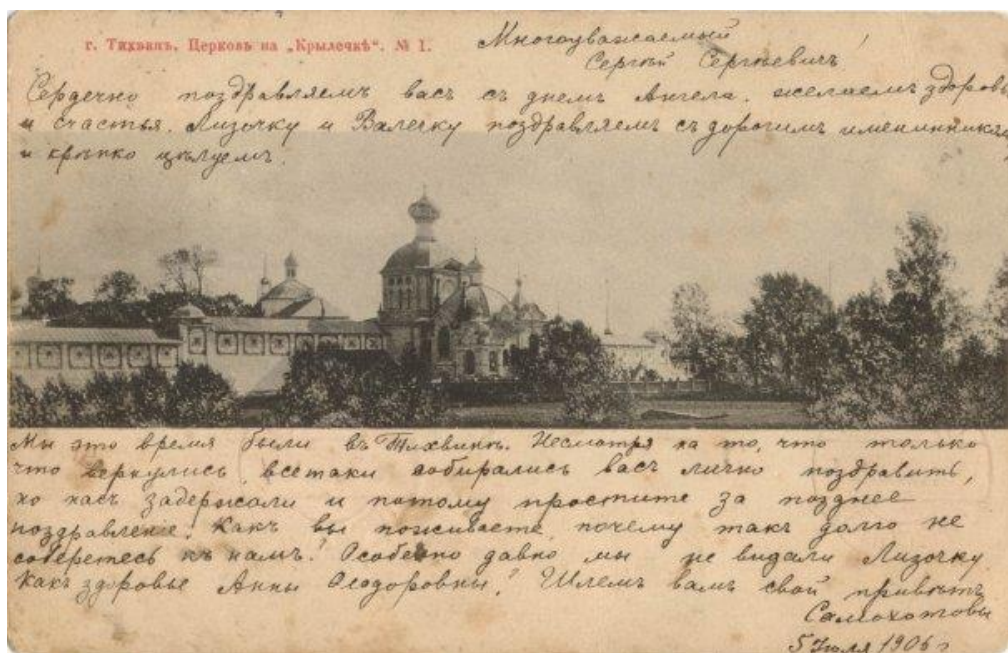 г. Тихвинъ. Церковь на „Крылечкѣ“. № 1.
Многоуважаемый
Сергѣй Сергѣевичъ!
Сердечно поздравляемъ васъ съ днемъ Ангела. желаемъ здоровь
и счастья. Лизочку и Валечку поздравляемъ съ дорогимъ именинник
и крѣпко цѣлуемъ.
Мы это время были въ Тихвинѣ. Несмотря на то, что только
что вернулись, всетаки собирались васъ лично поздравить,
но насъ задержали и потому простите за позднее
поздравление. Какъ вы поживаете, почему такъ долго не
соберетесь къ намъ? Особенно давно мы не видали Лизочку.
Какъ здоровье Анны Ѳеодоровны? Шлемъ вамъ свой привѣтъ
5 Июля 1906 г